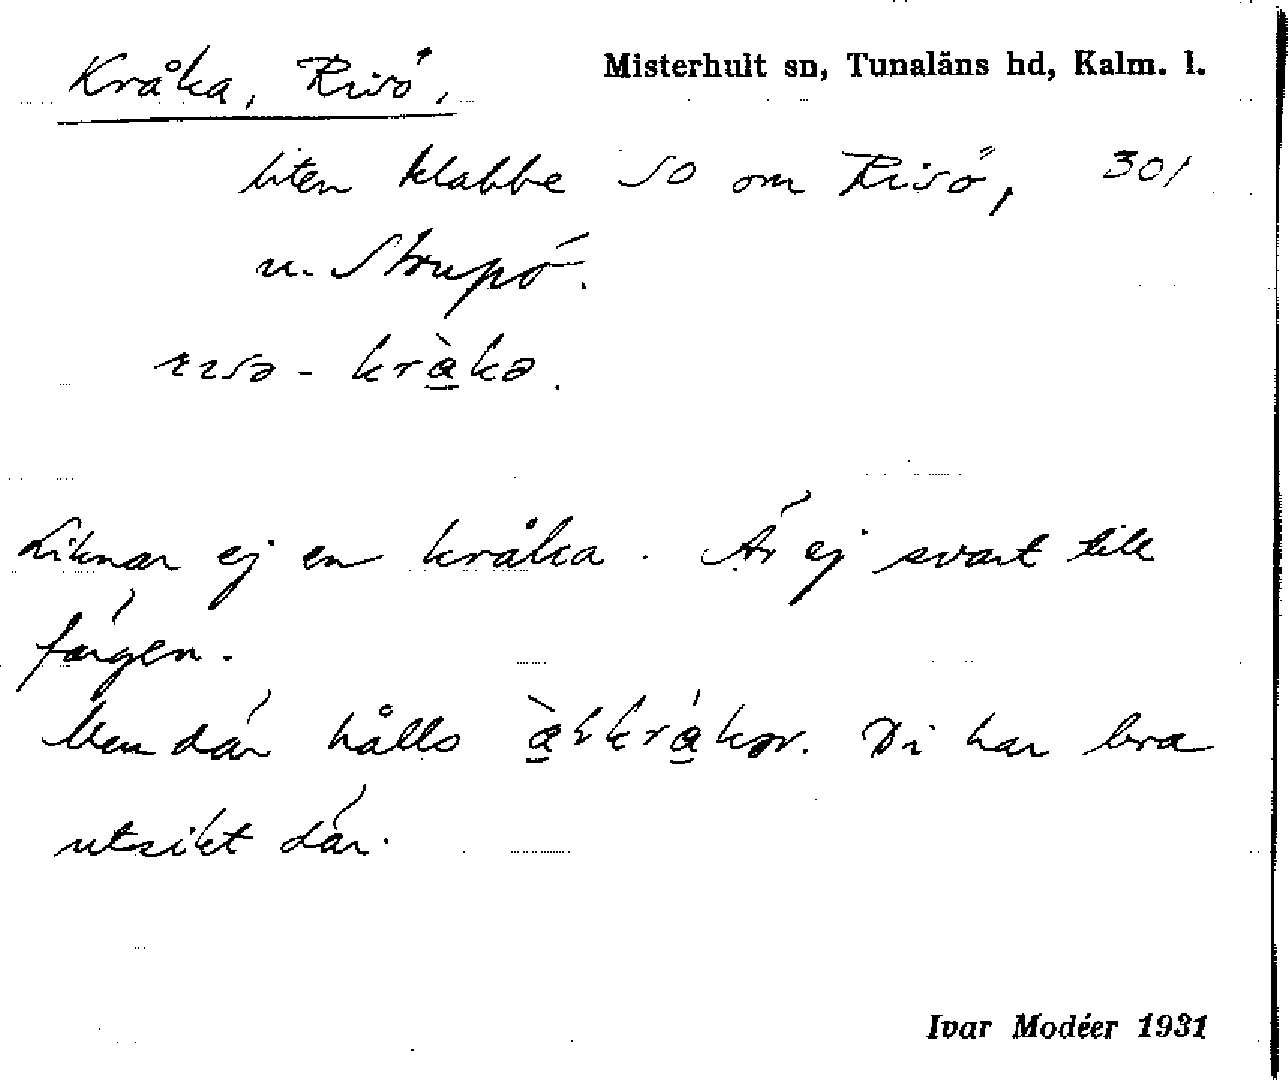 Kråka, Risö,
Misterhult sn, Tunaläns hd, Kalm. l.
liten klabbe SO om Risö, 301
n. Strupö.
rısə - kràkə.
Liknar ej en kråka. Är ej svart till
färgen.
Men där hålls àlkrákər. Di har bra
utsikt där.
Ivar Modéer 1931